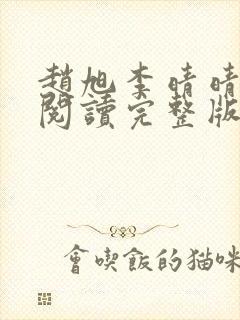 趙旭李晴晴
閱讀完整版
會喫飯的貓咪